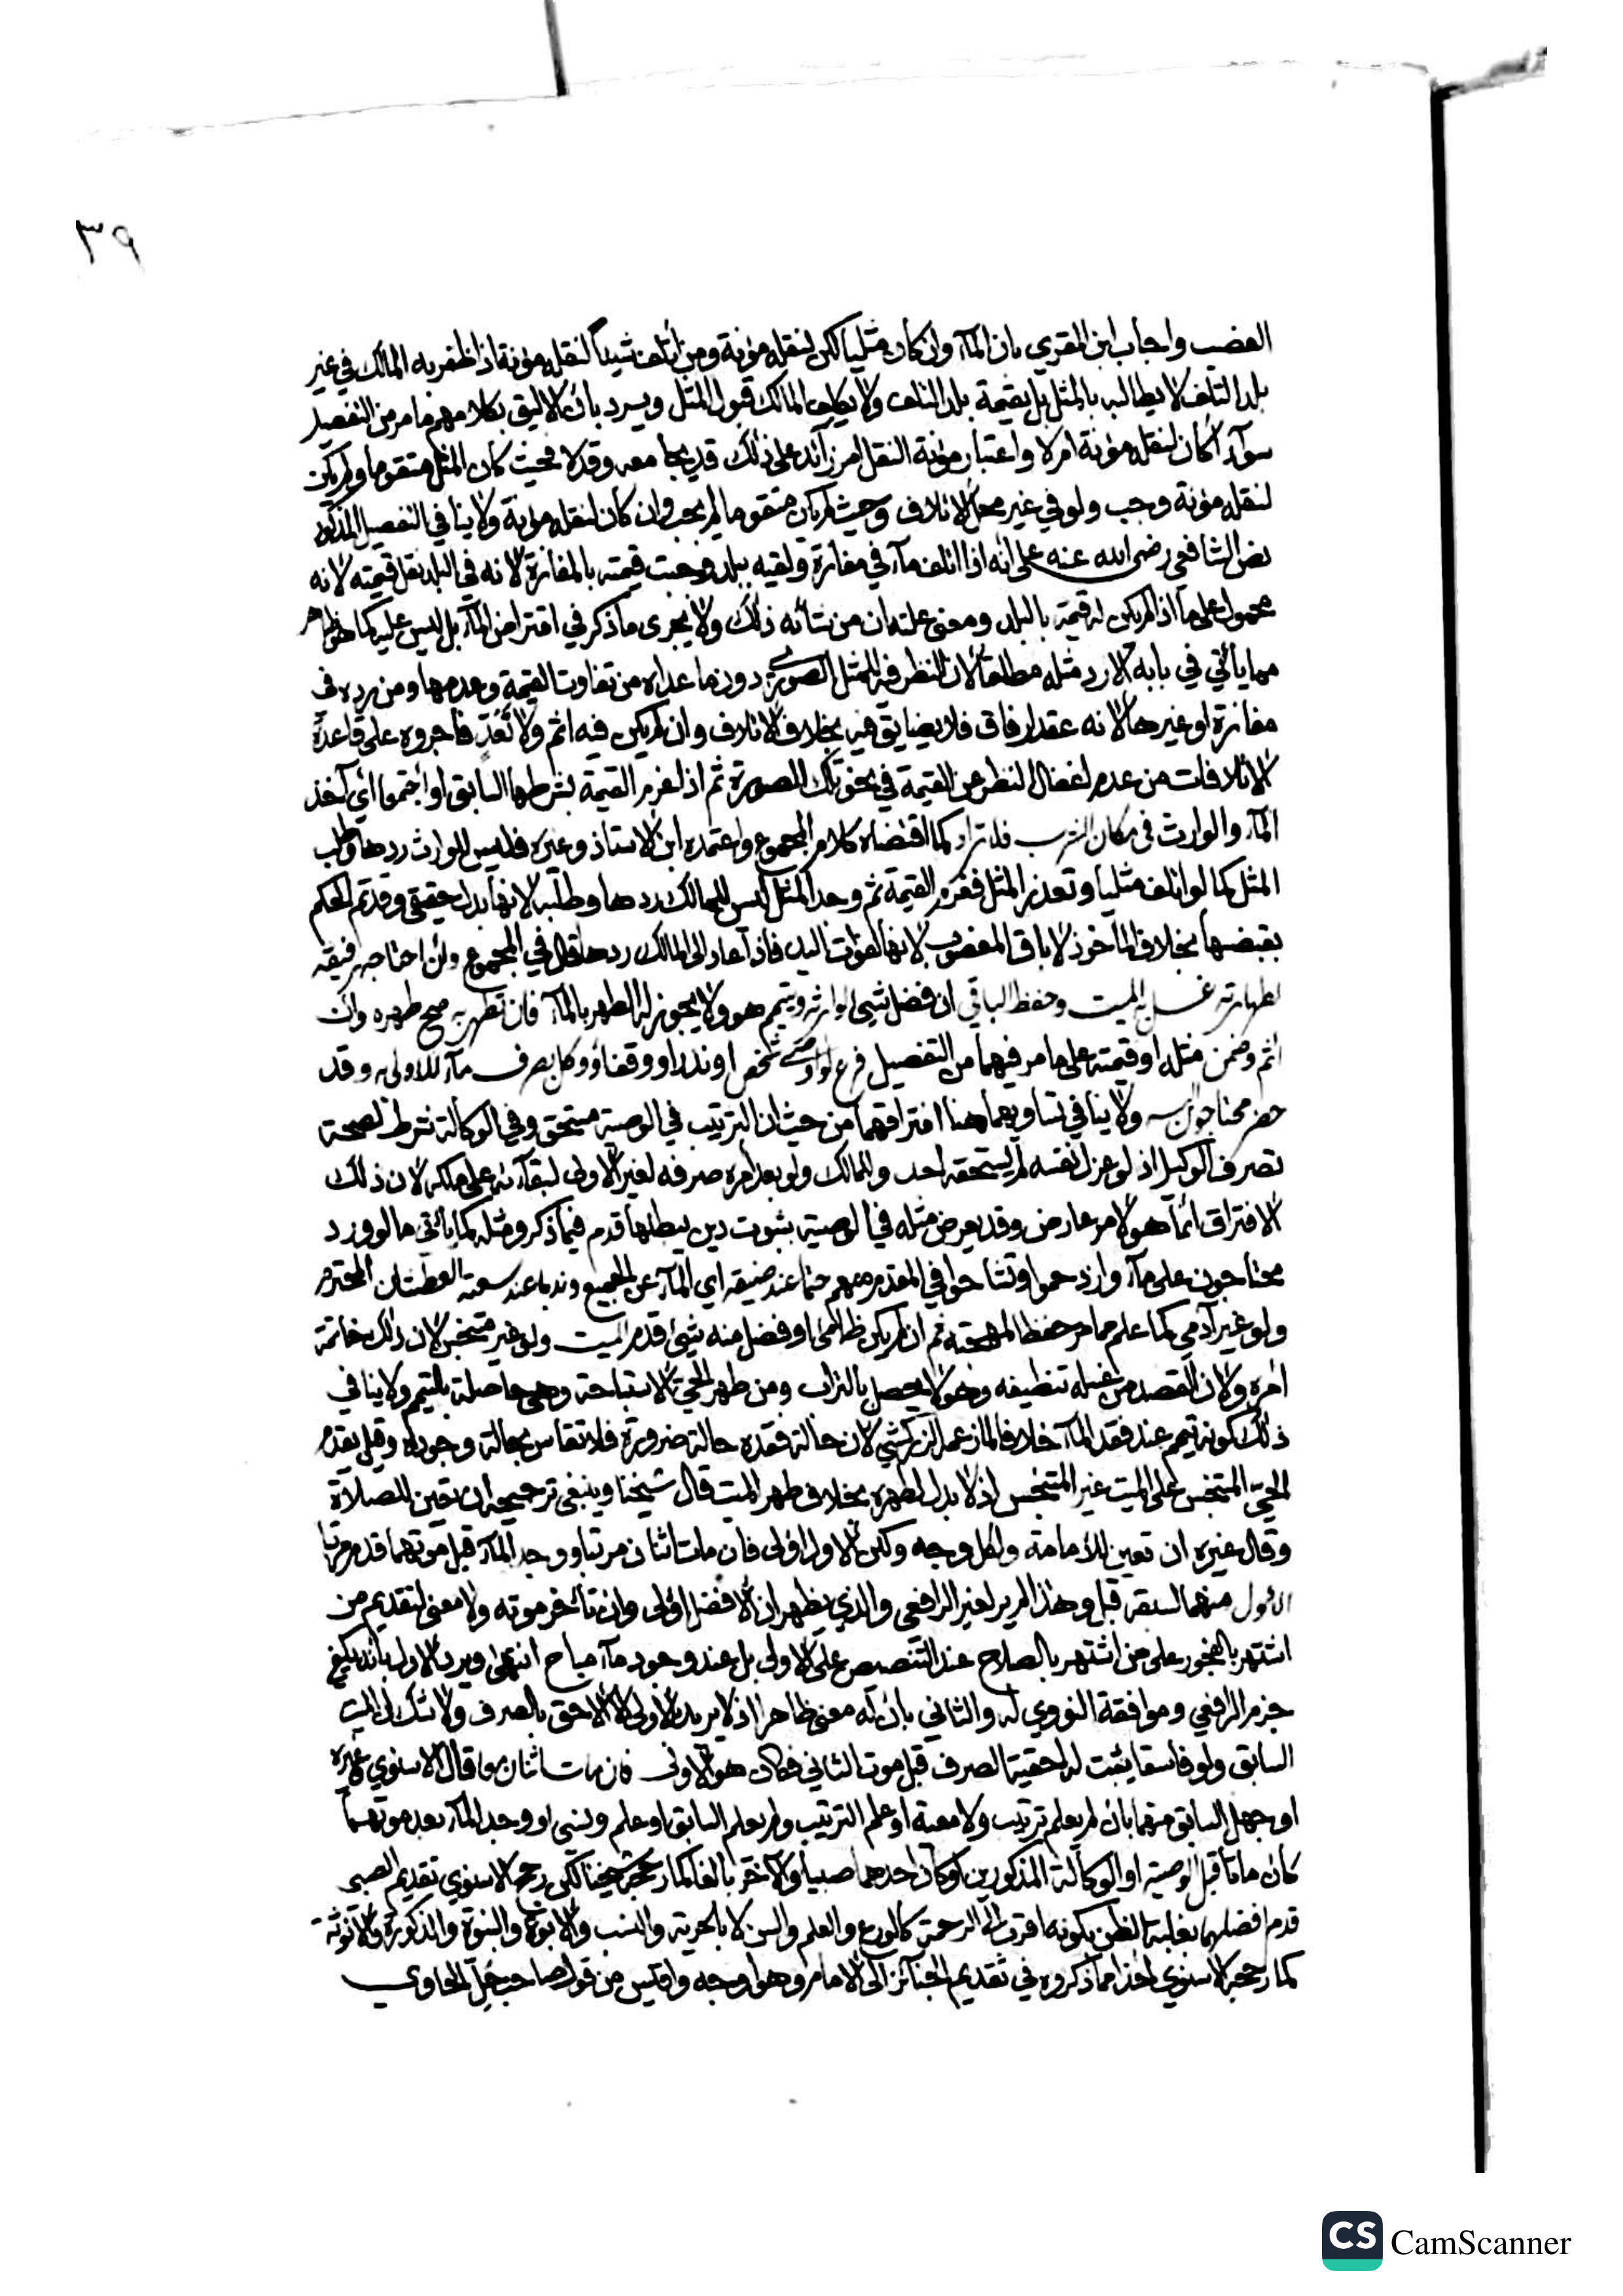 ٣٩
الغصب واجاب ابن المقري بان المآء وان كان مثليا لكن لنقله مؤنة ومن أتلف شيئا لنقله مؤنة اذا ظفر به المالك في غير
بلد التلف لا يطالبه بالمثل بل بقيمة بلد التلف ولا يكلف المالك قبول المثل ويرد بان الاليق بكلامهم ما مر من التفصيل
سوآء أكان لنقله مؤنة ام لا واعتبار مؤنة النقل امر زآئد على ذلك قد يجامعه وقد لا فحيث كان المثل متقوما ولم يكن
لنقله مؤنة وجب ولو في غير محل الاتلاف وحيث لم يكن متقوما لم يجب وان كان لنقله مؤنة ولا ينافي التفصيل المذكور
نص الشافعي رضي الله عنه على أنه اذا اتلف مآء في مفازة ولقيه ببلد وجبت قيمته بالمفازة لانه في البلد تقل قيمته لانه
محمول على ما اذا لم يكن له قيمة بالبلد ومعنى علته ان من شأنه ذلك ولا يجرى ما ذكر في اقتراض المآء بل ليس عليه كما هو ظاهر
مما يأتي في بابه الا رد مثله مطلقا لان النظر فيه للمثل الصوري دون ما عداه من تفاوت القيمة وعدمها ومن رده في
مفازة او غيرها لانه عقد ارفاق فلا يضايق فيه بخلاف الاتلاف وان لم يكن فيه اثم ولا تَعَدٍّ فاجروه على قاعدة
الاتلافات من عدم اغفال النظر عن القيمة في نحو تلك الصورة ثم اذا غرم القيمة بشرطها السابق او اجتمعوا أي آخذ
المآء والوارث في مكان الشرب فلا تراد كما اقتضاه كلام المجموع واعتمده ابن الاستاذ وغيره فليس للوارث ردها وطلب
المثل كما لو اتلف مثليا وتعذر المثل فغرم القيمة ثم وجد المثل ليس للمالك ردها وطلبه لانها بدل حقيقي وقد تم الحكم
بقبضها بخلاف المأخوذ لاباق المغصوب لانها لفوات اليد فاذا عاد الى المالك ردها قال في المجموع وان احتاجه رفيقه
لطهارته غسل به الميت وحفظ الباقي ان فضل شيء لوارثه ويتيمم هو ولا يجوز له الطهر بالمآء فان تطهر به صح طهره وان
اثم وضمن مثله او قيمته على ما مر فيهما من التفصيل فرع لو اوصى شخص او نذر او وقف او وكل بصرف مآء للاولى به وقد
حضر محتاجون اليه ولا ينافي تساويهما هنا افتراقهما من حيث ان الترتيب في الوصية مستحق وفي الوكالة شرط لصحة
تصرف الوكيل اذ لو عزل نفسه لم يستحقه احد وللمالك ولو بعد امره صرفه لغير الاولى لبقآئه على ملكه لان ذلك
الافتراق انما هو لامر عارض وقد يعرض مثله في الوصية بثبوت دين يبطلها قدم فيما ذكر ومثله كما يأتي ما لو ورد
محتاجون على مآء وازدحموا وتشاحوا في المقدم منهم حتما عند ضيقه اي المآء عن الجميع وندبا عند سعته العطشان المحترم
ولو غير آدمي كما علم مما مر حفظا لمهجته ثم ان لم يكن ظامئ او فضل منه شيئ قدم الميت ولو غير متنجس لان ذلك خاتمة
امره ولان القصد من غسله تنظيفه وهو لا يحصل بالتراب ومن طهر الحي الاستباحة وهي حاصلة بالتيمم ولا ينافي
ذلك كونه يتيمم عند فقد المآء خلافا لما زعمه الزركشي لان حالة فقده حالة ضرورة فلا تقاس بحالة وجوده وقيل يقدم
الحي المتنجس على الميت غير المتنجس اذ لا بدل لطهره بخلاف طهر الميت قال شيخنا وينبغي ترجيحه ان تعين للصلاة
وقال غيره ان تعين للأمامة ولكل وجه ولكن الاول اولى فان مات اثنان مرتبا ووجد المآء قبل موتهما قدم مرتبا
الاول منهما لسبقه قبل وهذا لم يره لغير الرافعي والذي يظهر ان الافضل اولى وان تأخر موته ولا معنى لتقديم من
اشتهر بالفجور على من اشتهر بالصلاح عند التنصيص على الاولى بل عند وجود مآء مباح انتهى ويرد الاول بانه يكفي
جزم الرافعي وموافقة النووي له والثاني بان له معنى ظاهرا اذ لا يريد بالاولى الا الاحق بالصرف ولا شك ان الميت
السابق ولو فاسقا يثبت له احقية الصرف قبل موت الثاني فكان هو الاولى فان مات اثنان معا قال الاسنوي وغيره
او جهل السابق منهما بان لم يعلم ترتيب ولا معية او علم الترتيب ولم يعلم السابق او علم ونسي او وجد المآء بعد موتهما
كان ماتا قبل الوصية او الوكالة المذكورين او كان احدهما صبيا والآخر بالغا كما رجحه شيخنا لكن رجح الاسنوي تقديم الصبي
قدم افضلهما بغلبة الظن بكونه اقرب الى الرحمة كالورع والعلم والسن لا بالحرية والنسب والابوة والبنوة والذكورة والانوثة
كما رجحه الاسنوي اخذا مما ذكروه في تقديم الجنائز الى الامام وهو اوجه واقيس من قول صاحب جل الحاوي
CS CamScanner